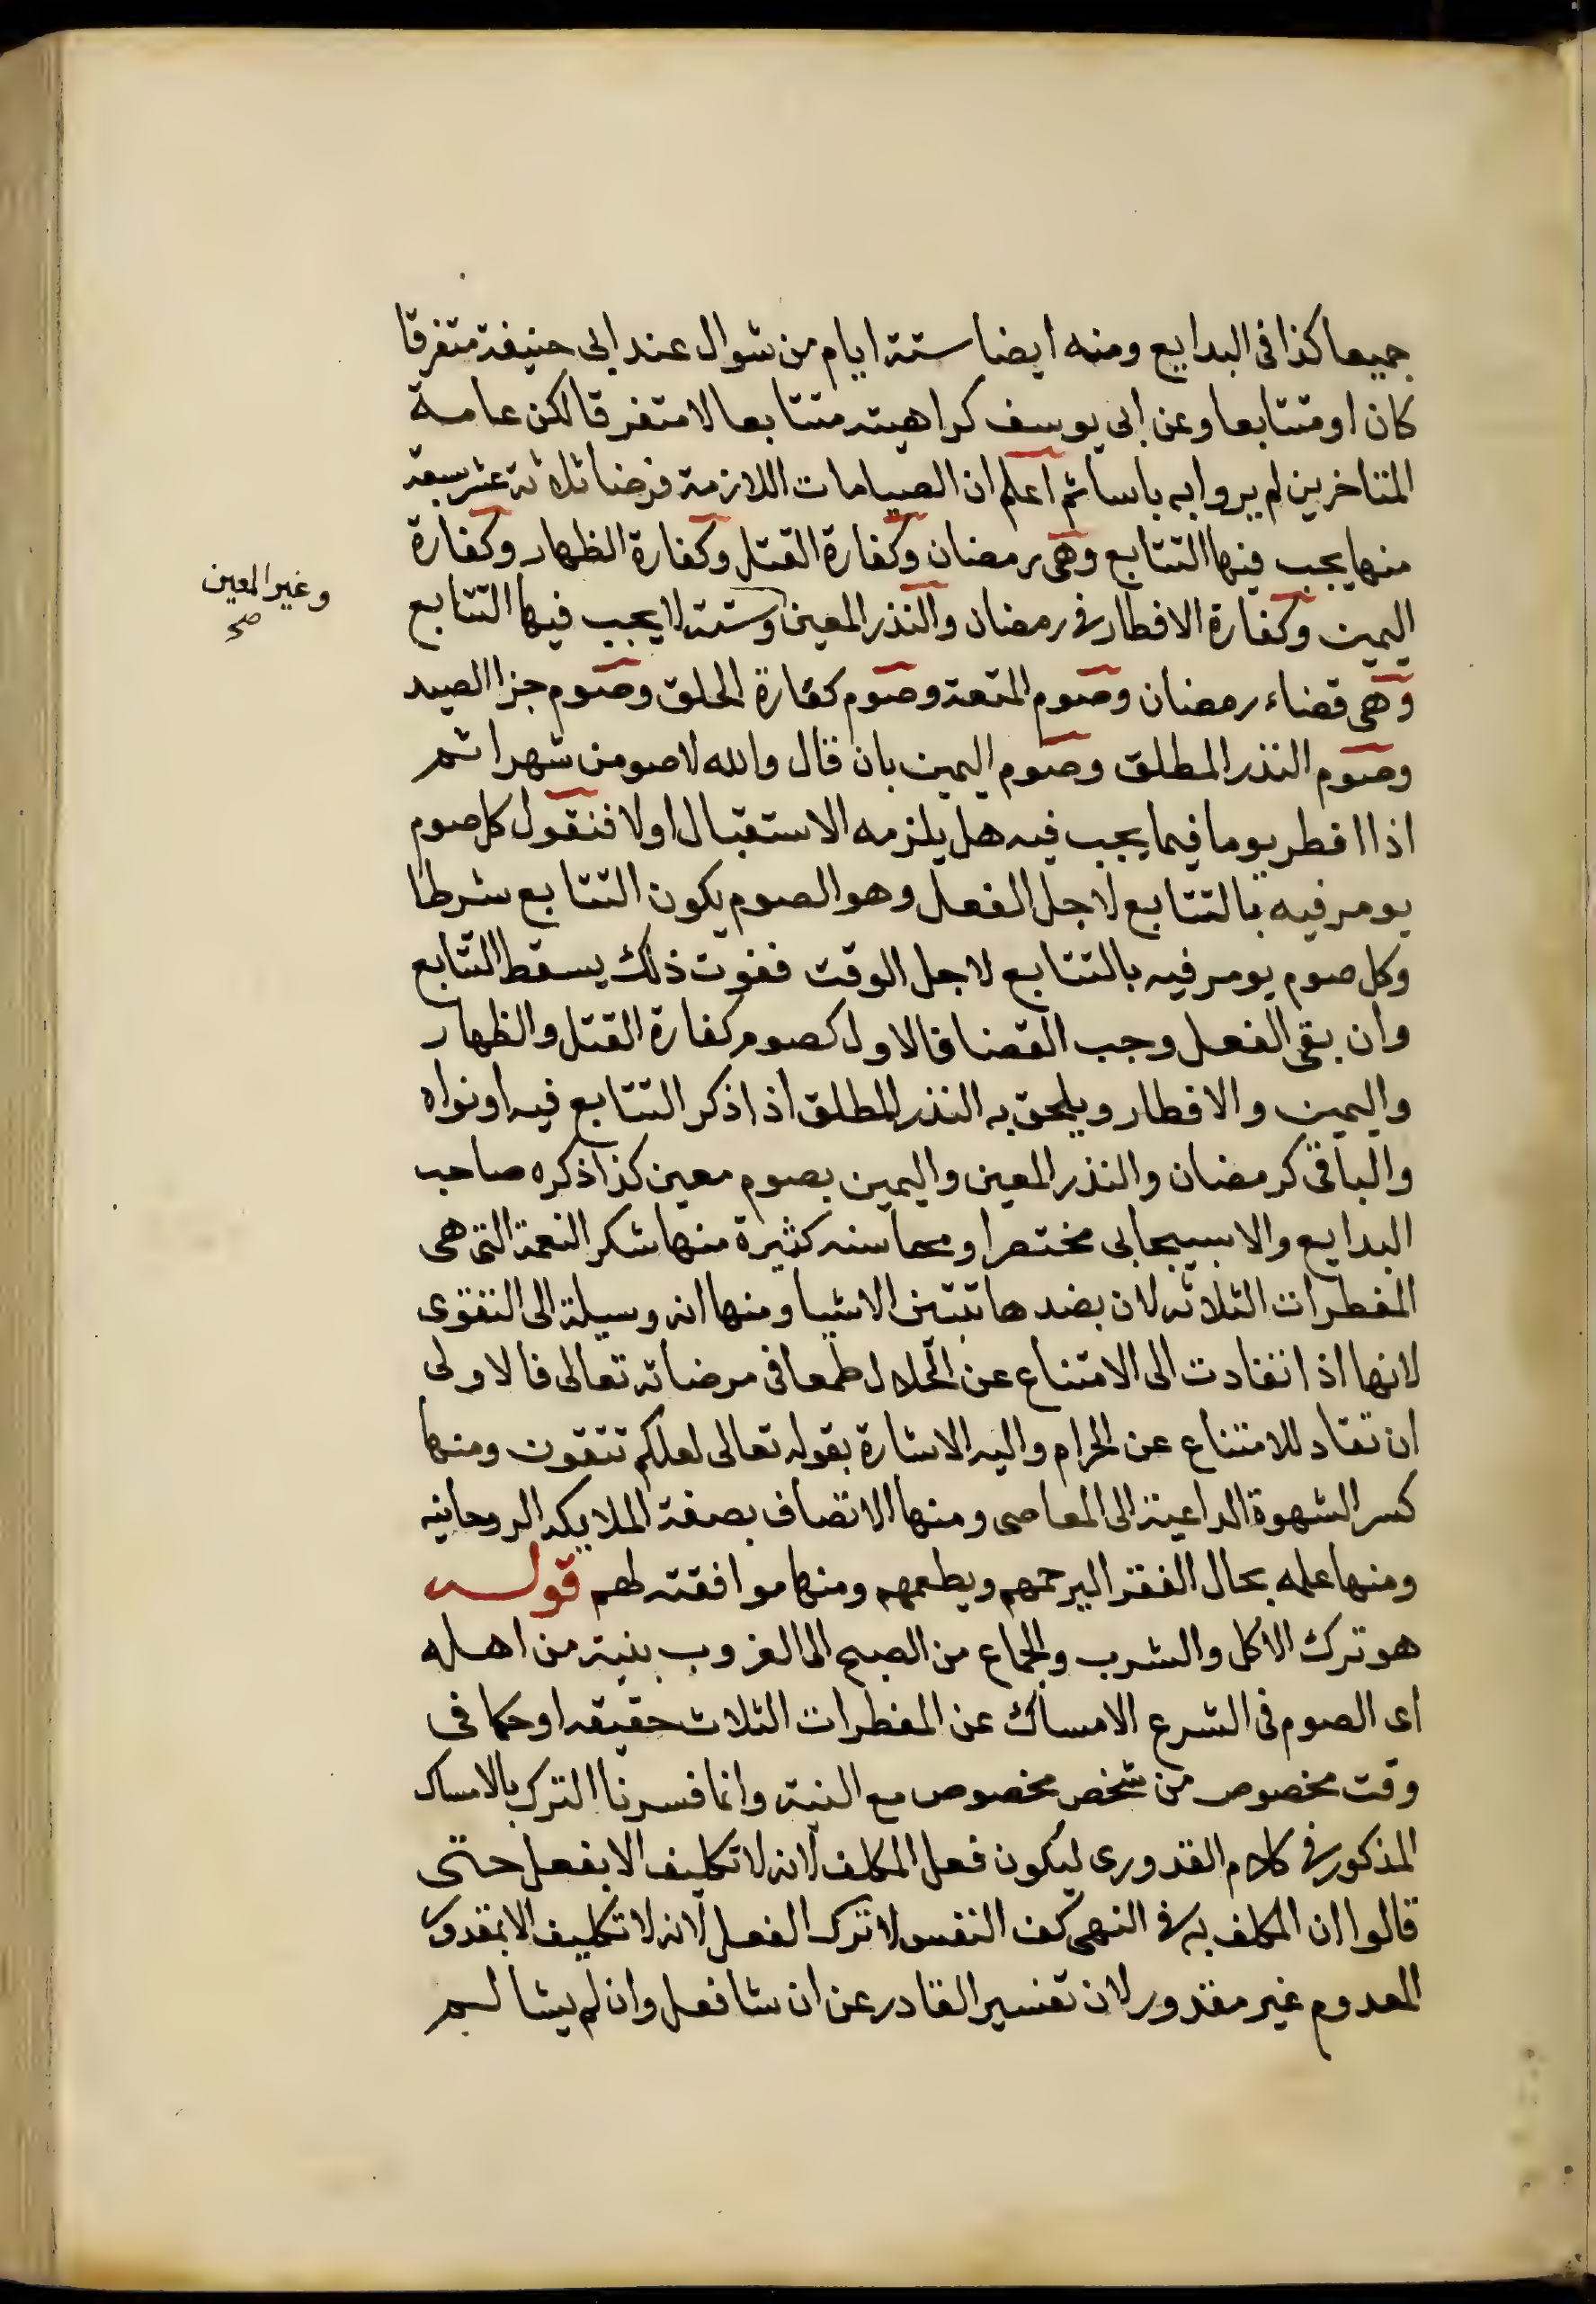 جميعا كذا فى البدايع ومنه ايضا ستة ايام من شوال عند ابى حنيفة متفرقا
كان او متتابعا وعن ابى يوسف كراهيته متتابعا لا متفرقا لكن عامة
المتاخرين لم يروا به باسا ثم اعلم ان الصيامات اللازمة فرضا ثلاثة عشر سبعة
منها يجب فيها التتابع وهى رمضان وكفارة القتل وكفارة الظهار وكفارة
اليمين وكفارة الافطار فى رمضان والنذر المعين وستة لا يجب فيها التتابع
وغير المعين
صح
وهى قضاء رمضان وصوم المتعة وصوم كفارة الحلق وصوم جزا الصيد
وصوم النذر المطلق وصوم اليمين بان قال والله لاصومن شهرا ثم
اذا افطر يوما فيما يجب فيه هل يلزمه الاستقبال اولا فنقول كل صوم
يومر فيه بالتتابع لاجل الفعل وهو الصوم يكون التتابع شرطا
وكل صوم يومر فيه بالتتابع لاجل الوقت ففوت ذلك يسقط التتابع
وان بقى الفعل وجب القضا فالاول كصوم كفارة القتل والظهار
واليمين والافطار ويلحق به النذر المطلق اذا ذكر التتابع فيه او نواه
والباقى كرمضان والنذر المعين واليمين بصوم معين كذا ذكره صاحب
البدايع والاسبيجابى مختصرا ومحاسنه كثيرة منها شكر النعمة التى هى
المفطرات الثلاثة لان بضدها تتبين الاشيا ومنها انه وسيلة الى التقوى
لانها اذا انقادت الى الامتناع عن الحلال طمعا فى مرضاته تعالى فالاولى
ان تقاد للامتناع عن الحرام واليه الاشارة بقوله تعالى لعلكم تتقون ومنها
كسر الشهوة الداعية الى المعاصى ومنها الاتصاف بصفة الملايكة الروحانيه
ومنها علمه بحال الفقرا ليرحمهم ويطعمهم ومنها موافقته لهم قوله
هو ترك الاكل والشرب والجماع من الصبح الى الغروب بنية من اهله
اى الصوم فى الشرع الامساك عن المفطرات الثلاث حقيقة او حكما فى
وقت مخصوص من شخص مخصوص مع النية وانما فسرنا الترك بالامساك
المذكور فى كلام القدورى ليكون فعل المكلف لانه لا تكليف الا بفعل حتى
قالوا ان المكلف به فى النهى كف النفس لا ترك الفعل لانه لا تكليف الا بمقدور
المعدوم غير مقدور لان تفسير القادر عن ان شا فعل وان لم يشا لم